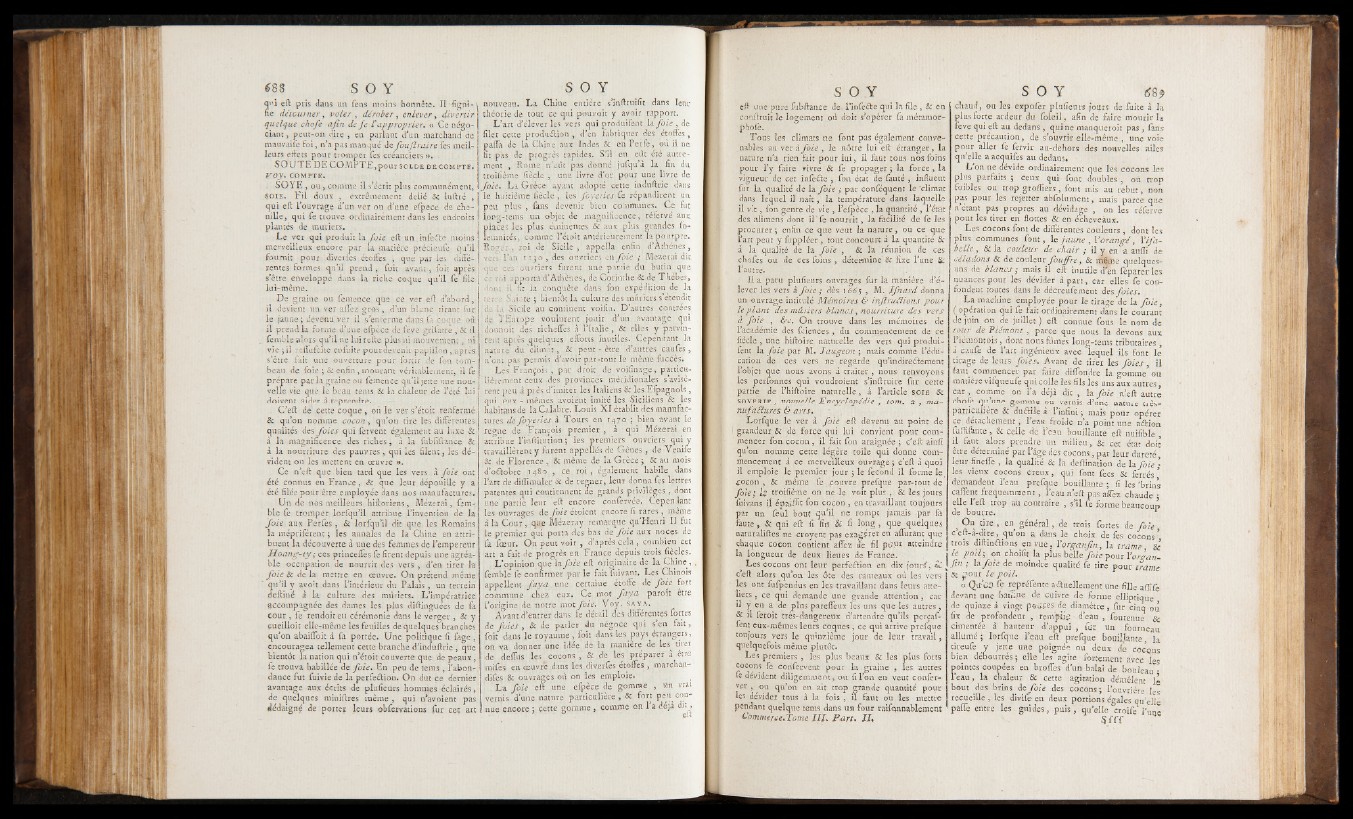 688 SOY
qui eſt pris dans un ſens moins honnête. Il ſigni-
fie détourner, voler, dérober, enlever, divertir
quelque choſe afin de ſe l'approprier. « Ce négo-
ciant, peut-on dire, en parlant d'un marchand de
mauvaiſe foi, n'a pas manqué de ſouſtraire ſes meil-
leurs effets pour tromper ſes créanciers ».
SOUTE DE COMPTE, pour SOLDE DE COMPTE.
VOY. COMPTE.
SOYE, ou, comme il s'écrit plus communément,
SOIE. Fil doux, extrêmement délié & luſtré,
qui eſt l'ouvrage d'un ver ou d'une eſpece de che-
nille, qui ſe trouve ordinairement dans les endroits
plantés de muriers.
Le ver qui produit la ſoie eſt un inſecte moins
merveilleux encore par la matière précieuſe qu'il
fournit pour diverſes étoffes, que par les diffé-
rentes formes qu'il prend, ſoit avant, ſoit après
s'être enveloppé dans la riche coque qu'il ſe file
lui-même.
De graine ou ſemence que ce ver eſt d'abord,
il devient un ver aſſez gros, d'un blanc tirant ſur
le jaune; devenu ver il s'enferme dans ſa coque où
il prend la forme d'une eſpèce de feve griſatre, & il
ſemble alors qu'il ne lui reſte plus ni mouvement, ni
vie; il reſſuſcite enſuite pour devenir papillon, après
s'être fait une ouverture pour ſortir de ſon tom-
beau de ſoie; & enfin, mourant véritablement, il ſe
prépare par la graine ou ſemence qu'il jette une nou-
velle vie que le beau tems & la chaleur de l'été lui
doivent aider à reprendre.
C'eſt de cette coque, où le ver s'étoit renfermé
& qu'on nomme cocon, qu'on tire les différentes
qualités des ſoies qui ſervent également au luxe &
à la magnificence des riches, à la ſubſiſtance &
à la nourriture des pauvres, qui les filent, les dé-
vident ou les mettent en œuvre ».
Ce n'eſt que bien tard que les vers à ſoie ont
été connus en France, & que leur dépouille y a
été filée pour être employée dans nos manufactures.
Un de nos meilleurs hiſtoriens, Mézerai, ſem-
ble ſe tromper lorſqu'il attribue l'invention de la
ſoie aux Perſes, & lorſqu'il dit que les Romains
la mépriſèrent; les annales de la Chine en attri-
buent la découverte à une des femmes de l'empereur
Hoang-ty; ces princeſſes ſe firent depuis une agréa-
ble occupation de nourrir des vers, d'en tirer la
ſoie & de la mettre en œuvre. On prétend même
qu'il y avoit dans l'intérieur du Palais, un terrein
deſtiné à la culture des mûriers. L'impératrice
accompagnée des dames les plus diſtinguées de ſa
cour, ſe rendoit en cérémonie dans le verger, & y
cueilloit elle-même les feuilles de quelques branches
qu'on abaiſſoit à ſa portée. Une politique ſi ſage,
encouragea tellement cette branche d'induſtrie, que
bientôt la nation qui n'étoit couverte que de peaux,
ſe trouva habillée de ſoie. En peu de tems, l'abon-
dance fut ſuivie de la perfection. On dut ce dernier
avantage aux écrits de pluſieurs hommes éclairés,
de quelques miniſtres même, qui n'avoient pas
dédaigné de porter leurs obſervations ſur cet art
SOY
nouveau. La Chine entière s'inſtruiſit dans leur
théorie de tout ce qui pouvoit y avoir rapport.
L'art d'élever les vers qui produiſent la ſoie, de
filer cette production, d'en fabriquer des étoffes,
paſſa de la Chine aux Indes & en Perſe, où il ne
fit pas de progrès rapides. S'il en eût été autre-
ment, Rome n'eût pas donné juſqu'à la fin du
troiſième ſiècle, une livre d'or pour une livre de
ſoie. La Grèce ayant adopté cette induſtrie dans
le huitième ſiecle, les ſoyeries ſe répandirent un
peu plus, ſans devenir bien communes. Ce fut
long-tems un objet de magnificence, réſervé aux
places les plus éminentes & aux plus grandes ſo-
lemnités, comme l'étoit antérieurement la pourpre.
Roger, roi de Sicile, appella enfin d'Athènes,
vers l'an 1130, des ouvriers en ſoie; Mezerai dit
que ces ouvriers furent une partie du butin que
ce roi apporta d'Athènes, de Corinthe & de Thebes,
dont il fit la conquête dans ſon expédition de la
terre Sainte; bientôt la culture des mûriers s'étendit
de la Sicile au continent voiſin. D'autres contrées
de l'Europe voulurent jouir d'un avantage qui
donnoit des richeſſes à l'Italie, & elles y parvin-
rent après quelques efforts inutiles. Cependant la
nature du climat, & peut-être d'autres cauſes,
n'ont pas permis d'avoir par-tout le même ſuccès.
Les François, par droit de voiſinage, particu-
liérement ceux des provinces méridionales s'aviſè-
rent peu à près d'imiter les Italiens & les Eſpagnols,
qui eux-mêmes avoient imité les Siciliens & les
habitans de la Calabre. Louis XI établit des manufac-
tures de ſoyeries à Tours en 1470; bien avant le
regne de François premier, à qui Mézerai en
attribue l'inſtitution; les premiers ouvriers qui y
travaillèrent y furent appellés de Gènes, de Veniſe
& de Florence, & même de la Grèce; & au mois
d'octobre 1480, ce roi, également habile dans
l'art de diſſimuler & de regner, leur donna ſes lettres
patentes qui contiennent de grands privilèges, dont
une partie leur eſt encore conſervée. Cependant
les ouvrages de ſoie étoient encore ſi rares, même
à la Cour, que Mézeray remarque qu'Henri II fut
le premier qui porta des bas de ſoie aux noces de
ſa ſœur. On peut voir, d'après cela, combien cet
art a fait de progrès en France depuis trois ſiècles.
L'opinion que la ſoie eſt originaire de la Chine,
ſemble ſe confirmer par le fait ſuivant. Les Chinois
appellent ſaya une certaine étoffe de ſoie fort
commune chez eux. Ce mot ſaya paroît être
l'origine de notre mot ſoie. Voy. SAYA.
Avant d'entrer dans le détail des différentes ſortes
de ſoies, & de parler du négoce qui s'en fait,
ſoit dans le royaume, ſoit dans les pays étrangers,
on va donner une idée de la manière de les tirer
de deſſus les cocons, & de les préparer à être
miſes en œuvre dans les diverſes étoffes, marchan-
diſes & ouvrages où on les emploie.
La ſoie eſt une eſpèce de gomme, un vrai
vernis d'une nature particulière, & fort peu con-
nue encore; cette gomme, comme on l'a déjà dit,
eſt
SOY
eſt une pure ſubſtance de l'inſecte qui la file, & en
conſtruit le logement où doit s'opérer ſa métamor-
phoſe.
Tous les climats ne ſont pas également conve-
nables au ver à ſoie, le nôtre lui eſt étranger, la
nature n'a rien fait pour lui, il faut tous nos ſoins
pour l'y faire vivre & ſe propager; la force, la
vigueur de cet inſecte, ſon état de ſanté, influent
ſur la qualité de la ſoie, par conſéquent le climat
dans lequel il naît, la température dans laquelle
il vit, ſon genre de vie, l'eſpèce, la quantité, l'état
des alimens dont il ſe nourrit, la facilité de ſe les
procurer; enfin ce que veut la nature, ou ce que
l'art peut y ſuppléer, tout concourt à la quantité &
à la qualité de la ſoie, & la réunion de ces
choſes ou de ces ſoins, détermine & fixe l'une &
l'autre.
Il a paru pluſieurs ouvrages ſur la manière d'é-
lever les vers à ſoie; dès 1665, M. Iſnard donna
un ouvrage intitulé Mémoires & inſtructions pour
le plant des mûriers blancs, nourriture des vers
à ſoie, &c. On trouve dans les mémoires de
l'académie des ſciences, du commencement de ce
ſiècle, une hiſtoire naturelle des vers qui produi-
ſent la ſoie par M. Jaugeon; mais comme l'édu-
cation de ces vers ne regarde qu'indirectement
l'objet que nous avons à traiter, nous renvoyons
les perſonnes qui voudroient s'inſtruire ſur cette
partie de l'hiſtoire naturelle, à l'article SOIE &
SOYERIE, nouvelle Encyclopédie, tom. 2, ma-
nufactures & arts.
Lorſque le ver à ſoie eſt devenu au point de
grandeur & de force qui lui convient pour com-
mencer ſon cocon, il fait ſon araignée; c'eſt ainſi
qu'on nomme cette légère toile qui donne com-
mencement à ce merveilleux ouvrage; c'eſt à quoi
il emploie le premier jour; le ſecond il forme le
cocon, & même ſe couvre preſque par-tout de
ſoie; le troiſième on ne le voit plus, & les jours
ſuivans il épaiſſit ſon cocon, en travaillant toujours
par un ſeul bout qu'il ne rompt jamais par ſa
faute, & qui eſt ſi fin & ſi long, que quelques
naturaliſtes ne croyent pas exagérer en aſſurant que
chaque cocon contient aſſez de fil pour atteindre
la longueur de deux lieues de France.
Les cocons ont leur perfection en dix jours, &
c'eſt alors qu'on les ôte des rameaux où les vers
les ont ſuſpendus en les travaillant dans leurs atte-
liers, ce qui demande une grande attention, car
il y en a de plus pareſſeux les uns que les autres,
& il ſeroit très-dangereux d'attendre qu'ils perçaſ-
ſent eux-mêmes leurs coques, ce qui arrive preſque
toujours vers le quinzième jour de leur travail,
quelquefois même plutôt.
Les premiers, les plus beaux & les plus forts
cocons ſe conſervent pour la graine, les autres
ſe dévident diligemment, ou ſi l'on en veut conſer-
ver, ou qu'on en ait trop grande quantité pour
les dévider tous à la fois, il faut ou les mettre
pendant quelque tems dans un four raiſonnablement
Commerce. Tome III. Part. II.
SOY 689
chaud, ou les expoſer pluſieurs jours de ſuite à la
plus forte ardeur du ſoleil, afin de faire mourir la
feve qui eſt au dedans, qui ne manqueroit pas, ſans
cette précaution, de s'ouvrir elle-même, une voie
pour aller ſe ſervir au-dehors des nouvelles ailes
qu'elle a acquiſes au dedans.
L'on ne dévide ordinairement que les cocons les
plus parfaits; ceux qui ſont doubles, ou trop
foibles ou trop groſſiers, ſont mis au rebut, non
pas pour les rejetter abſolument, mais parce que
n'étant pas propres au dévidage, on les réſerve
pour les tirer en flottes & en écheveaux.
Les cocons ſont de différentes couleurs, dont les
plus communes ſont, le jaune, l'orangé, l'iſa-
belle, & la couleur de chair; il y en a auſſi de
céladons & de couleur ſouffre, & même quelques-
uns de blancs; mais il eſt inutile d'en ſéparer les
nuances pour les dévider à part, car elles ſe con-
fondent toutes dans le décreuſement des ſoies.
La machine employée pour le tirage de la ſoie,
(opération qui ſe fait ordinairement dans le courant
de juin ou de juillet) eſt connue ſous le nom de
tour de Piémont, parce que nous la devons aux
Piémontois, dont nous fûmes long-tems tributaires,
à cauſe de l'art ingénieux avec lequel ils font le
tirage de leurs ſoies. Avant de tirer les ſoies, il
faut commencer par faire diſſoudre la gomme ou
matière viſqueuſe qui colle les fils les uns aux autres,
car, comme on l'a déjà dit, la ſoie n'eſt autre
choſe qu'une gomme ou vernis d'une nature très-
particulière & ductile à l'infini; mais pour opérer
ce détachement, l'eau froide n'a point une action
ſuffiſante, & celle de l'eau bouillante eſt nuiſible,
il faut alors prendre un milieu, & cet état doit
être déterminé par l'âge des cocons, par leur dureté,
leur fineſſe, la qualité & la deſtination de la ſoie;
les vieux cocons creux, qui ſont ſecs & ſerrés,
demandent l'eau preſque bouillante; ſi les brins
caſſent fréquemment, l'eau n'eſt pas aſſez chaude;
elle l'eſt trop au contraire, s'il ſe forme beaucoup
de bourre.
On tire, en général, de trois ſortes de ſoie,
c'eſt-à-dire, qu'on a dans le choix de ſes cocons,
trois diſtinctions en vue, l'organſin, la trame, &
le poil; on choiſit la plus belle ſoie pour l'organ-
ſin; la ſoie de moindre qualité ſe tire pour trame
& pour le poil.
« Qu'on ſe repréſente actuellement une fille aſſiſe
devant une baſſine de cuivre de forme elliptique,
de quinze à vingt pouces de diamètre, ſur cinq ou
ſix de profondeur, remplie d'eau, ſoutenue &
cimentée à hauteur d'appui, ſur un fourneau
allumé; lorſque l'eau eſt preſque bouillante, la
tireuſe y jette une poignée ou deux de cocons
bien débourrés; elle les agite fortement avec les
pointes coupées en broſſes d'un balai de bouleau;
l'eau, la chaleur & cette agitation démêlent le
bout des brins de ſoie des cocons; l'ouvrière les
recueille, les diviſe en deux portions égales qu'elle
paſſe entre les guides, puis, qu'elle croiſe l'une
Sſſſ